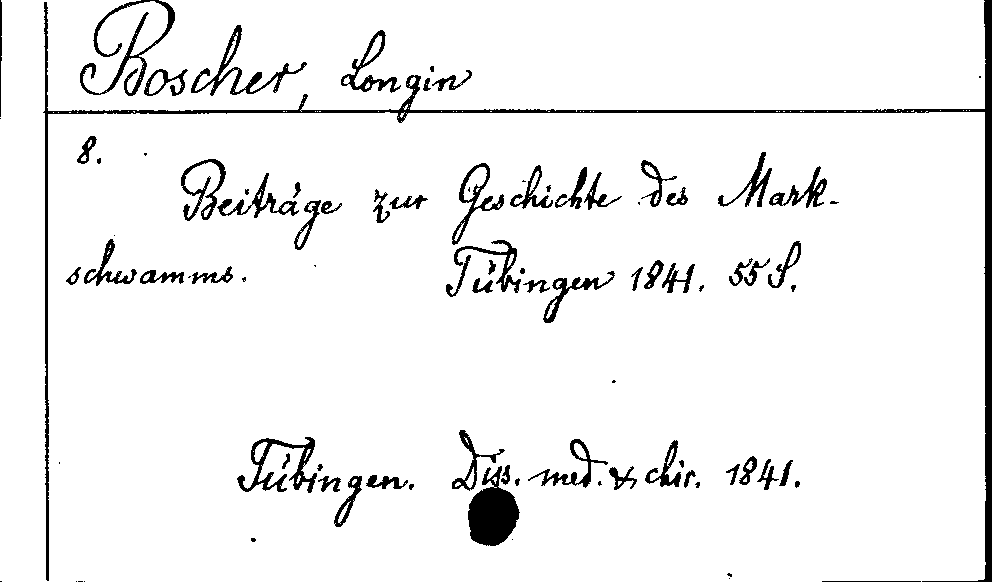 Boscher, Longin
8.
Beiträge zur Geschichte des Mark-
schwamms. Tübingen 1841. 55 S.
Tübingen. Diss. med. & chir. 1841.